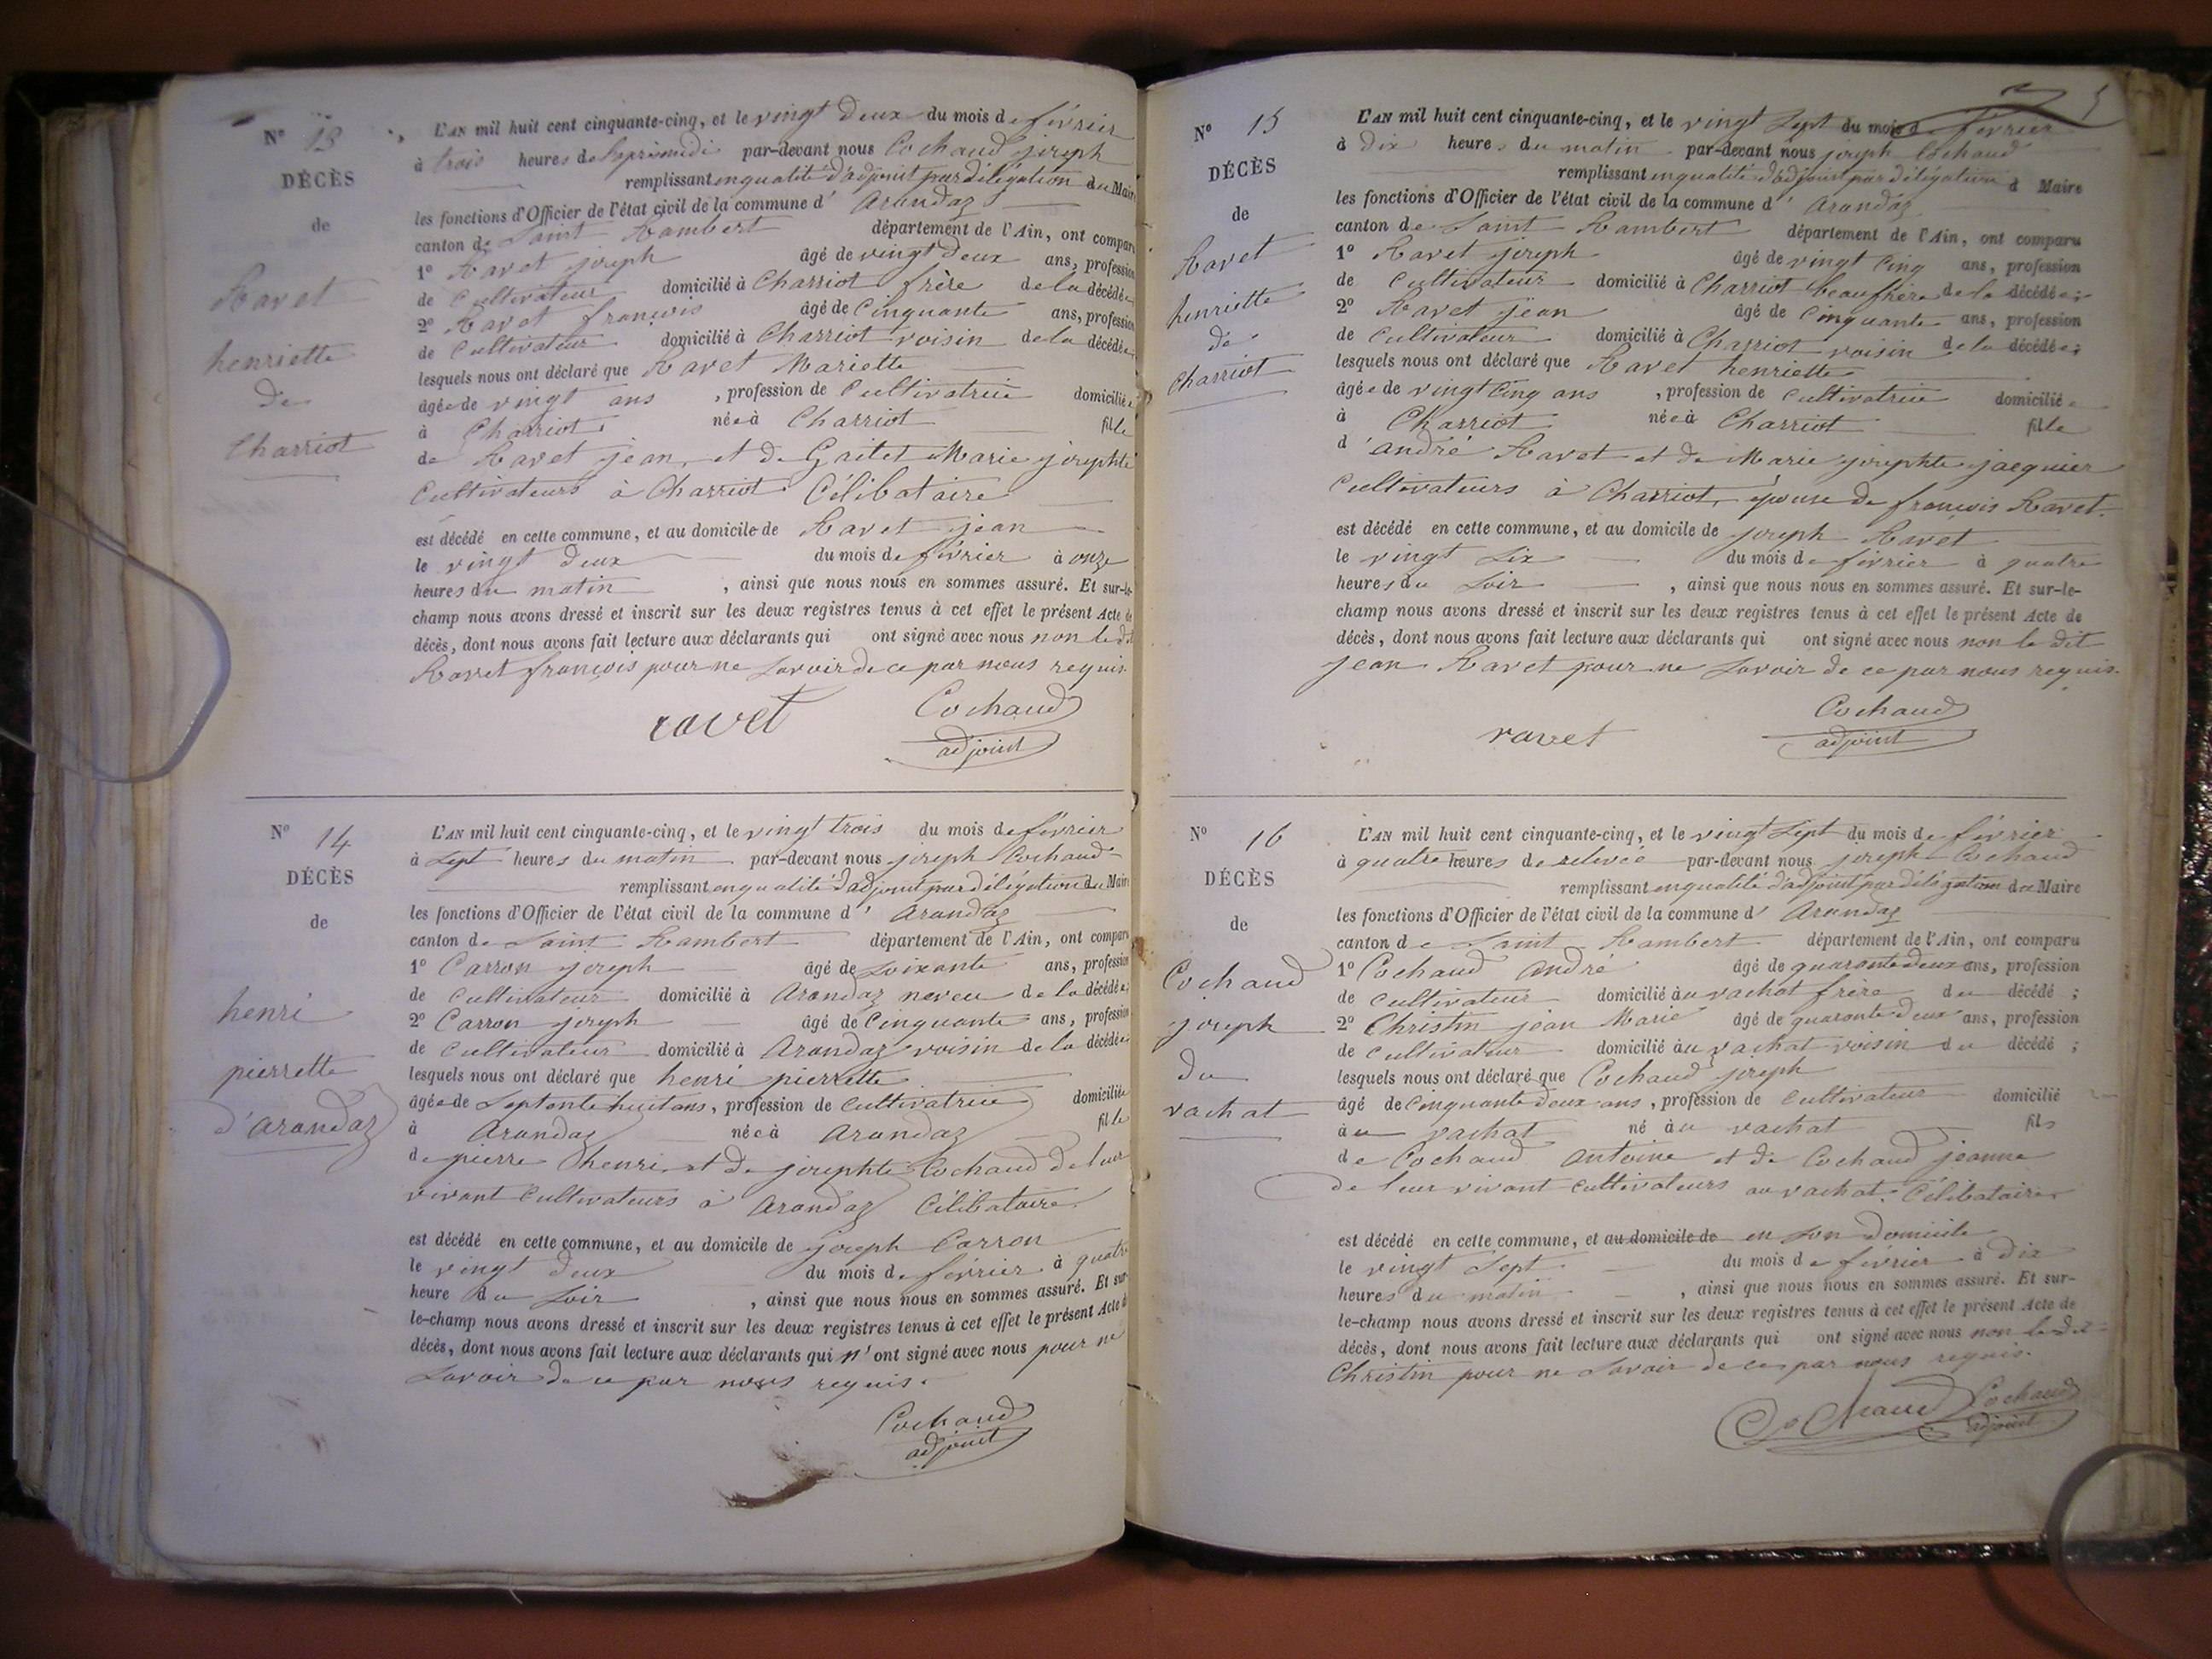 N° 13
DÉCÈS
de
Ravet
henriette
de
Charriot
L'AN mil huit cent cinquante-cinq, et le vingt deux du mois de février
à trois heures de laprèsmidi par-devant nous Cochaud joseph
remplissant enqualité d'adjoint par délégation du Maire
les fonctions d'Officier de l'état civil de la commune d' Arandaz
canton de Saint Rambert département de l'Ain, ont comparu
1° Ravet joseph âgé de vingt deux ans, profession
de Cultivateur domicilié à Charriot frère de la décédée
2° Ravet françois âgé de Cinquante ans, profession
de Cultivateur domicilié à Charriot voisin de la décédée
lesquels nous ont déclaré que Ravet Mariette
âgée de vingt ans , profession de Cultivatrice domiciliée
à Charriot née à Charriot fille
de Ravet jean, et de Gaitet Marie josephte
Cultivateurs à Charriot Célibataire
est décédé en cette commune, et au domicile de Ravet jean
le vingt deux du mois de février à onze
heures du matin , ainsi que nous nous en sommes assuré. Et sur-le-
champ nous avons dressé et inscrit sur les deux registres tenus à cet effet le présent Acte de
décès, dont nous avons fait lecture aux déclarants qui ont signé avec nous non le dit
Ravet françois pour ne savoir de ce par nous requis
ravet Cochaud
adjoint
N° 14
DÉCÈS
de
henri
pierrette
d'Arandaz
L'AN mil huit cent cinquante-cinq, et le vingt trois du mois de février
à Sept heures du matin par-devant nous joseph Cochaud
remplissant enqualité d'adjoint par délégation du Maire
les fonctions d'Officier de l'état civil de la commune d' Arandaz
canton de Saint Rambert département de l'Ain, ont comparu
1° Carron joseph âgé de Soixante ans, profession
de Cultivateur domicilié à Arandaz neveu de la décédée
2° Carron joseph âgé de Cinquante ans, profession
de Cultivateur domicilié à Arandaz voisin de la décédée
lesquels nous ont déclaré que henri pierrette
âgée de Septante huit ans, profession de Cultivatrice domiciliée
à Arandaz née à Arandaz fille
de pierre henri et de josephte Cochaud de leur
vivant Cultivateurs à Arandaz Célibataire
est décédé en cette commune, et au domicile de joseph Carron
le vingt deux du mois de février à quatre
heure du Soir , ainsi que nous nous en sommes assuré. Et sur-
le-champ nous avons dressé et inscrit sur les deux registres tenus à cet effet le présent Acte de
décès, dont nous avons fait lecture aux déclarants qui n'ont signé avec nous pour ne
Savoir de ce par nous requis.
Cochaud
adjoint
5
N° 15
DÉCÈS
de
Ravet
henriette
de
Charriot
L'AN mil huit cent cinquante-cinq, et le vingt Sept du mois de février
à dix heures du matin par-devant nous joseph Cochaud
remplissant enqualité d'adjoint par délégation d Maire
les fonctions d'Officier de l'état civil de la commune d' Arandaz
canton de Saint Rambert département de l'Ain, ont comparu
1° Ravet joseph âgé de vingt Cinq ans, profession
de Cultivateur domicilié à Charriot beaufrère de la décédée;
2° Ravet jean âgé de Cinquante ans, profession
de Cultivateur domicilié à Charriot voisin de la décédée;
lesquels nous ont déclaré que Ravet henriette
âgée de vingt Cinq ans , profession de Cultivatrice domiciliée
à Charriot née à Charriot fille
d'andré Ravet et de Marie josephte jacquier
Cultivateurs à Charriot, épouse de françois Ravet.
est décédé en cette commune, et au domicile de joseph Ravet
le vingt Six du mois de février à quatre
heures du Soir , ainsi que nous nous en sommes assuré. Et sur-le-
champ nous avons dressé et inscrit sur les deux registres tenus à cet effet le présent Acte de
décès, dont nous avons fait lecture aux déclarants qui ont signé avec nous non le dit
jean Ravet pour ne Savoir de ce par nous requis.
ravet Cochaud
adjoint
N° 16
DÉCÈS
de
Cochaud
joseph
du
vachat
L'AN mil huit cent cinquante-cinq, et le vingt Sept du mois de février
à quatre heures de relevée par-devant nous joseph Cochaud
remplissant enqualité d'adjoint par délégation du Maire
les fonctions d'Officier de l'état civil de la commune d' Arandaz
canton de Saint Rambert département de l'Ain, ont comparu
1° Cochaud André âgé de quarante deux ans, profession
de Cultivateur domicilié au vachat frère du décédé ;
2° Christin jean Marie âgé de quarante deux ans, profession
de Cultivateur domicilié au vachat voisin du décédé ;
lesquels nous ont déclaré que Cochaud joseph
âgé de Cinquante deux ans , profession de Cultivateur domicilié
à u vachat né au vachat fils
de Cochaud Antoine et de Cochaud jeanne
de leur vivant Cultivateurs au vachat. Célibataire
est décédé en cette commune, et au domicile de en Son Domicile
le vingt Sept du mois de février à dix
heures du matin , ainsi que nous nous en sommes assuré. Et sur-
le-champ nous avons dressé et inscrit sur les deux registres tenus à cet effet le présent Acte de
décès, dont nous avons fait lecture aux déclarants qui ont signé avec nous non le dit
Christin pour ne Savoir de ce par nous requis.
Cochaud Cochaud
adjoint